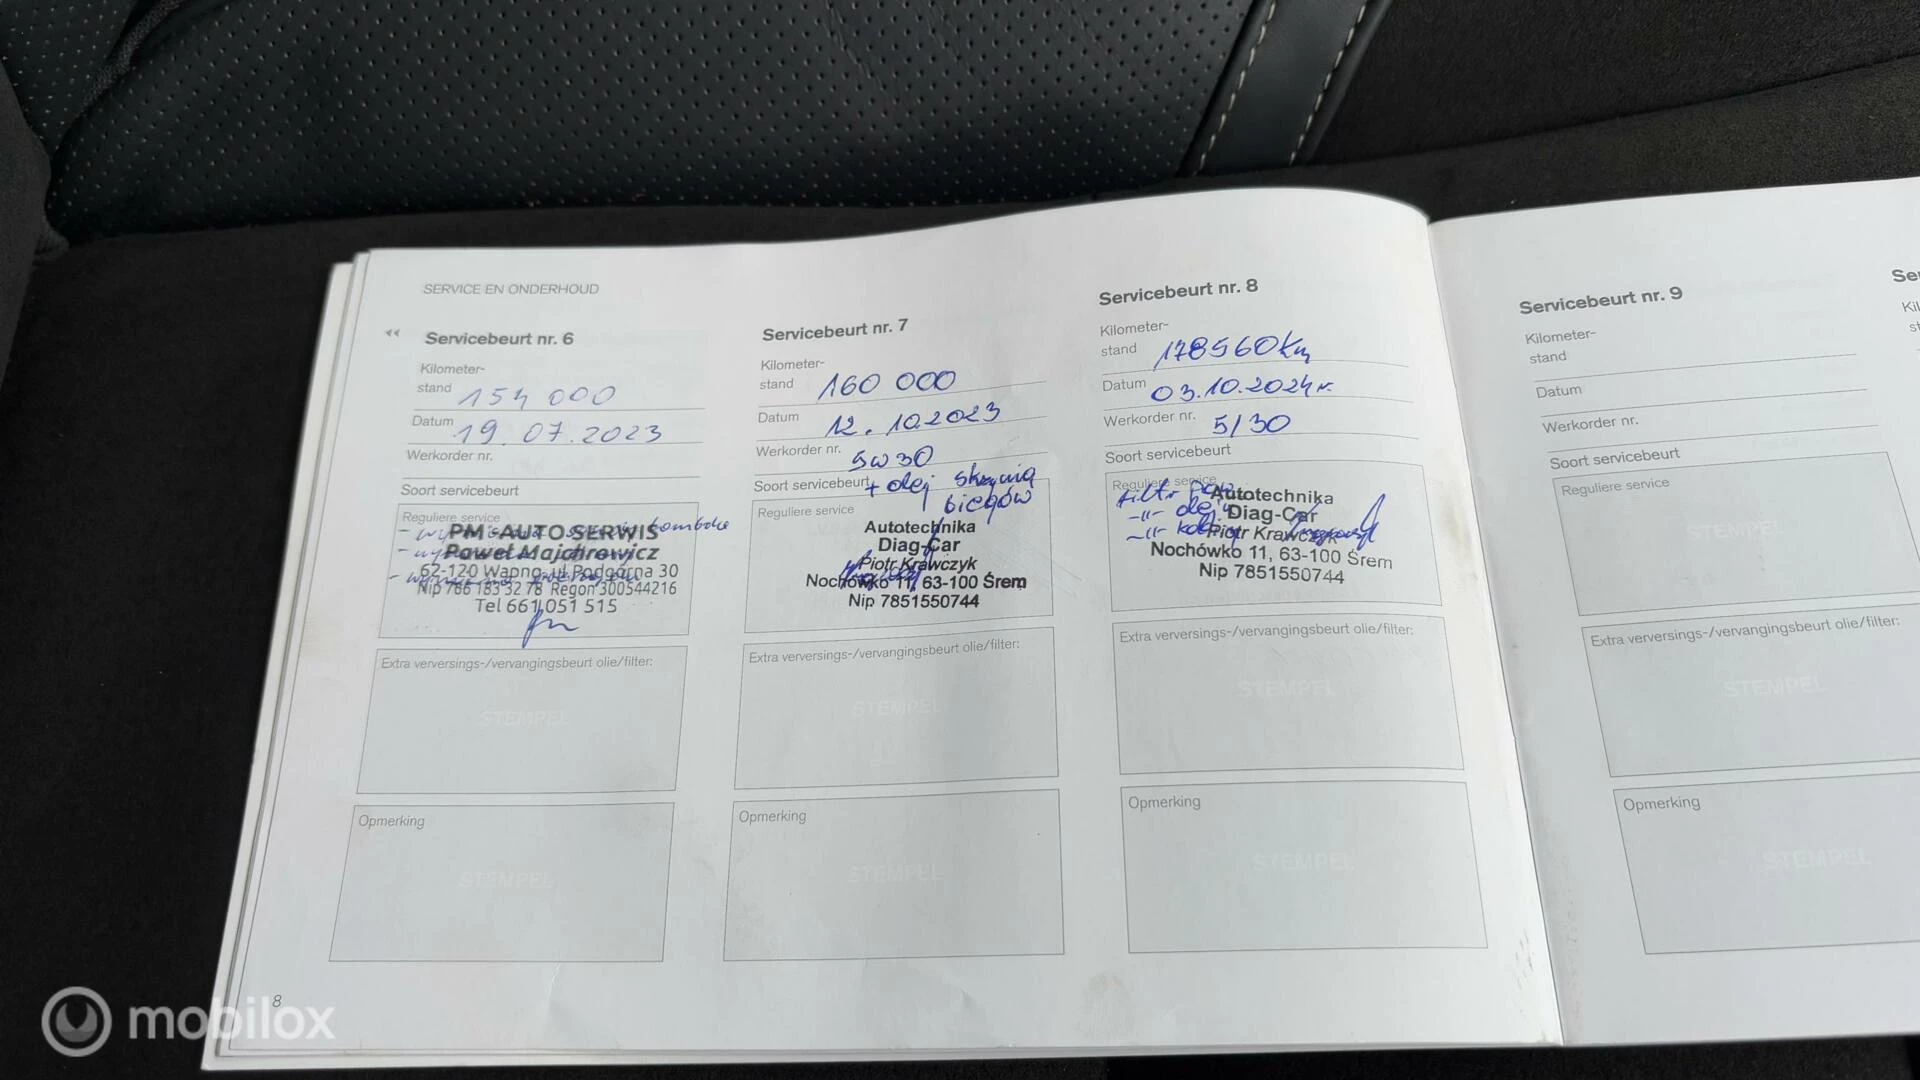 SERVICE EN ONDERHOUD
Servicebeurt nr. 6
Kilometer-
stand 154 000
Datum 19.07.2023
Werkorder nr.
Soort servicebeurt
Reguliere service
PM-AUTO SERWIS
Paweł Majchrowicz
62-120 Wapno, ul. Podgórna 30
Nip 766 183 32 78 Regon 300544216
Tel 661 051 515
Extra verversings-/vervangingsbeurt olie/filter:
STEMPEL
Opmerking
STEMPEL
8
Servicebeurt nr. 7
Kilometer-
stand 160 000
Datum 12.10.2023
Werkorder nr. 5w30
Soort servicebeurt + olej skrzynia
biegów
Reguliere service
Autotechnika
Diag-Car
Piotr Krawczyk
Nochówko 11, 63-100 Śrem
Nip 7851550744
Extra verversings-/vervangingsbeurt olie/filter:
STEMPEL
Opmerking
STEMPEL
Servicebeurt nr. 8
Kilometer-
stand 178560 Km
Datum 03.10.2024 r.
Werkorder nr. 5/30
Soort servicebeurt
Reguliere service
filtr
-"- olej
-"-
Autotechnika
Diag-Car
Piotr Krawczyk
Nochówko 11, 63-100 Śrem
Nip 7851550744
Extra verversings-/vervangingsbeurt olie/filter:
STEMPEL
Opmerking
STEMPEL
Servicebeurt nr. 9
Kilometer-
stand
Datum
Werkorder nr.
Soort servicebeurt
Reguliere service
STEMPEL
Extra verversings-/vervangingsbeurt olie/filter:
STEMPEL
Opmerking
STEMPEL
mobilox